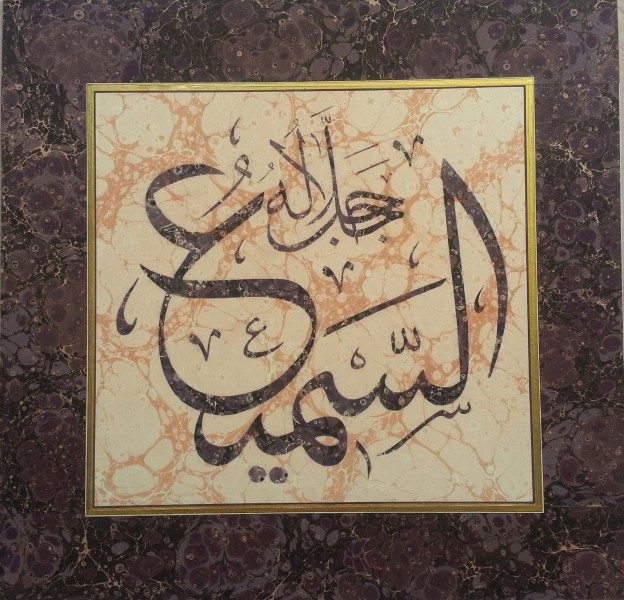 السَّمِيع
جَلَّ جَلَالُهُ